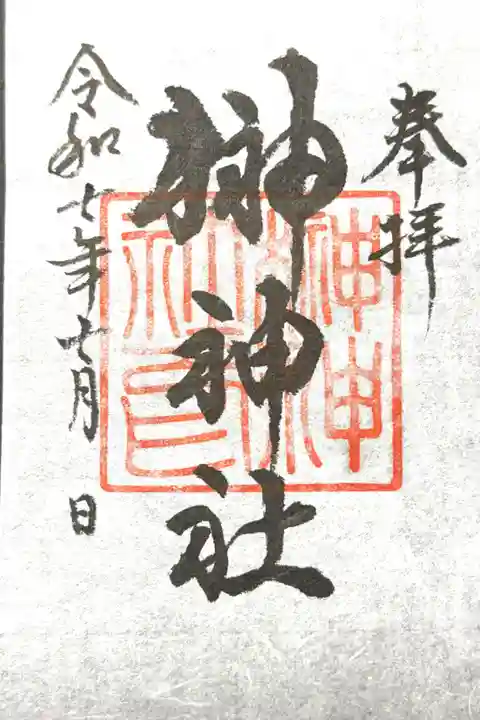 奉拝
榊神社
榊神社印
令和七年七月 日